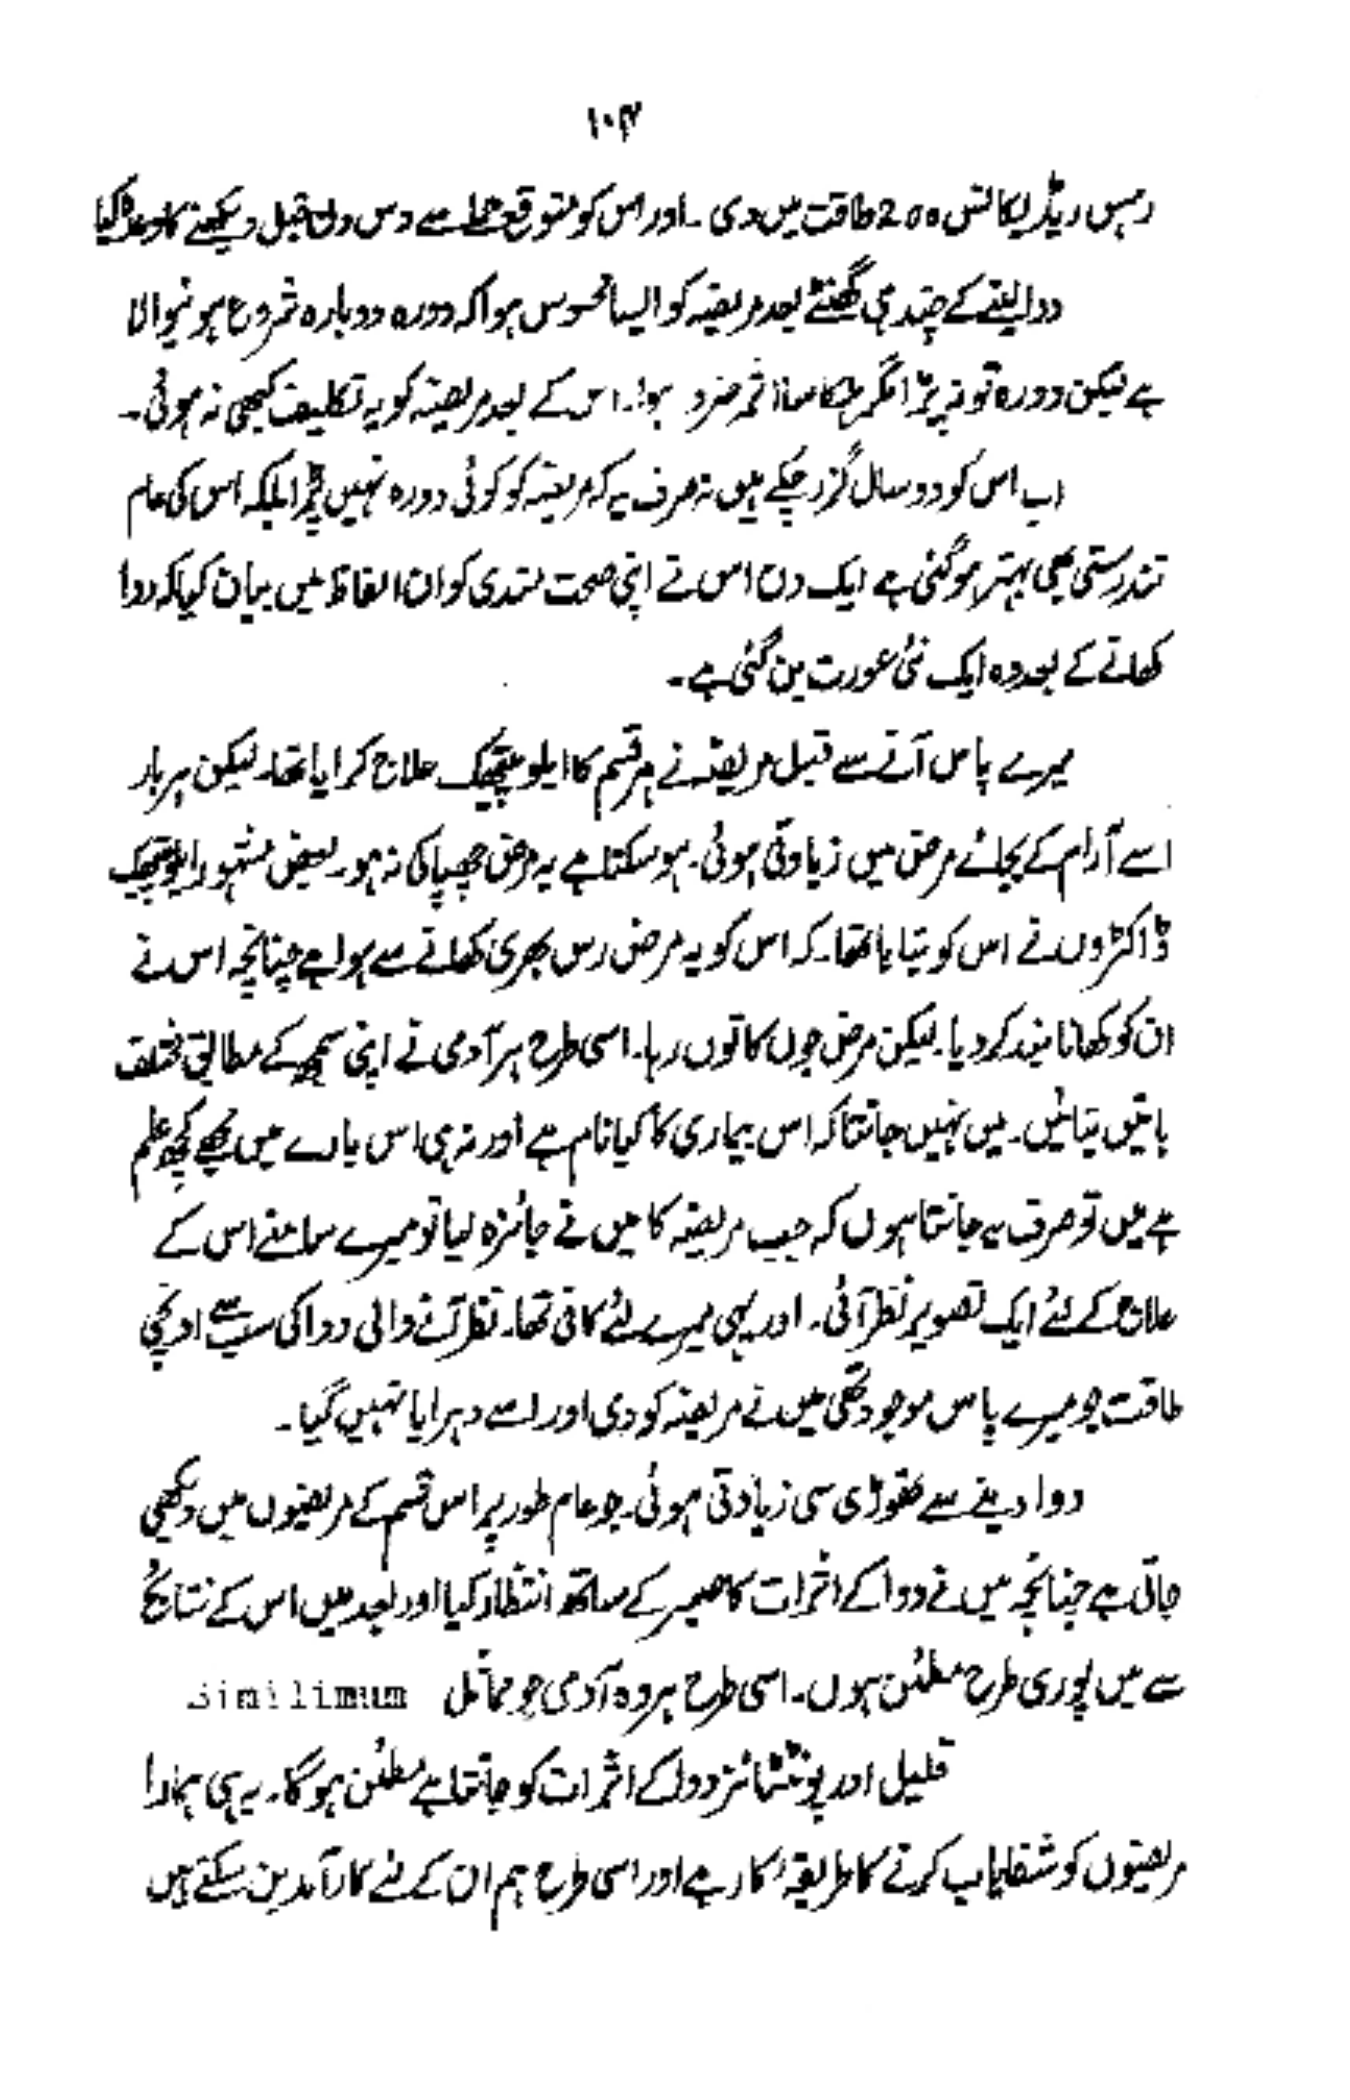 ۱۰۴
رہس ریڈیکانس 200 طاقت میں دی ۔ اور اس کو متوقع حملے سے دس دن قبل دیکھنے کا وعدہ کیا
دوا لینے کے چند ہی گھنٹے بعد مریضہ کو ایسا محسوس ہوا کہ دورہ دوبارہ شروع ہونیوالا
ہے لیکن دورہ تو نہ پڑا مگر ہلکا سا اثر ضرور ہوا۔ اس کے بعد مریضہ کو یہ تکلیف کبھی نہ ہوئی ۔
اب اس کو دو سال گزر چکے ہیں نہ صرف یہ کہ مریضہ کو کوئی دورہ نہیں پڑا بلکہ اس کی عام
تندرستی بھی بہتر ہو گئی ہے ایک دن اس نے اپنی صحت مندی کو ان الفاظ میں بیان کیا کہ دوا
کھانے کے بعد وہ ایک نئی عورت بن گئی ہے ۔
میرے پاس آنے سے قبل مریضہ نے ہر قسم کا ایلوپیتھیک علاج کرایا تھا۔ لیکن ہر بار
اسے آرام کے بجائے مرض میں زیادتی ہوئی۔ ہو سکتا ہے یہ مرض چھپاکی نہ ہو۔ بعض مشہور ایلوپیتھیک
ڈاکٹروں نے اس کو بتایا تھا۔ کہ اس کو یہ مرض رس بھری کھانے سے ہوا ہے چنانچہ اس نے
ان کو کھانا بند کر دیا۔ لیکن مرض جوں کا توں رہا۔ اسی طرح ہر آدمی نے اپنی سمجھ کے مطابق مختلف
باتیں بتائیں۔ میں نہیں جانتا کہ اس بیماری کا کیا نام ہے اور نہ ہی اس بارے میں مجھے کچھ علم
ہے میں تو صرف یہ جانتا ہوں کہ جب مریضہ کا میں نے جائزہ لیا تو میرے سامنے اس کے
علاج کے لئے ایک تصویر نظر آئی۔ اور یہی میرے لئے کافی تھا۔ نظر آنے والی دوا کی سب سے اونچی
طاقت جو میرے پاس موجود تھی میں نے مریضہ کو دی اور اسے دہرایا نہیں گیا ۔
دوا دینے سے تھوڑی سی زیادتی ہوئی۔ جو عام طور پر اس قسم کے مریضوں میں دیکھی
جاتی ہے چنانچہ میں نے دوا کے اثرات کا صبر کے ساتھ انتظار کیا اور بعد میں اس کے نتائج
سے میں پوری طرح مطمئن ہوں۔ اسی طرح ہر وہ آدمی جو مماثل Similimum
قلیل اور پوٹنٹائز دوا کے اثرات کو جانتا ہے مطمئن ہو گا۔ یہ ہی ہمارا
مریضوں کو شفایاب کرنے کا طریقہ کار ہے اور اسی طرح ہم ان کے لئے کارآمد بن سکتے ہیں